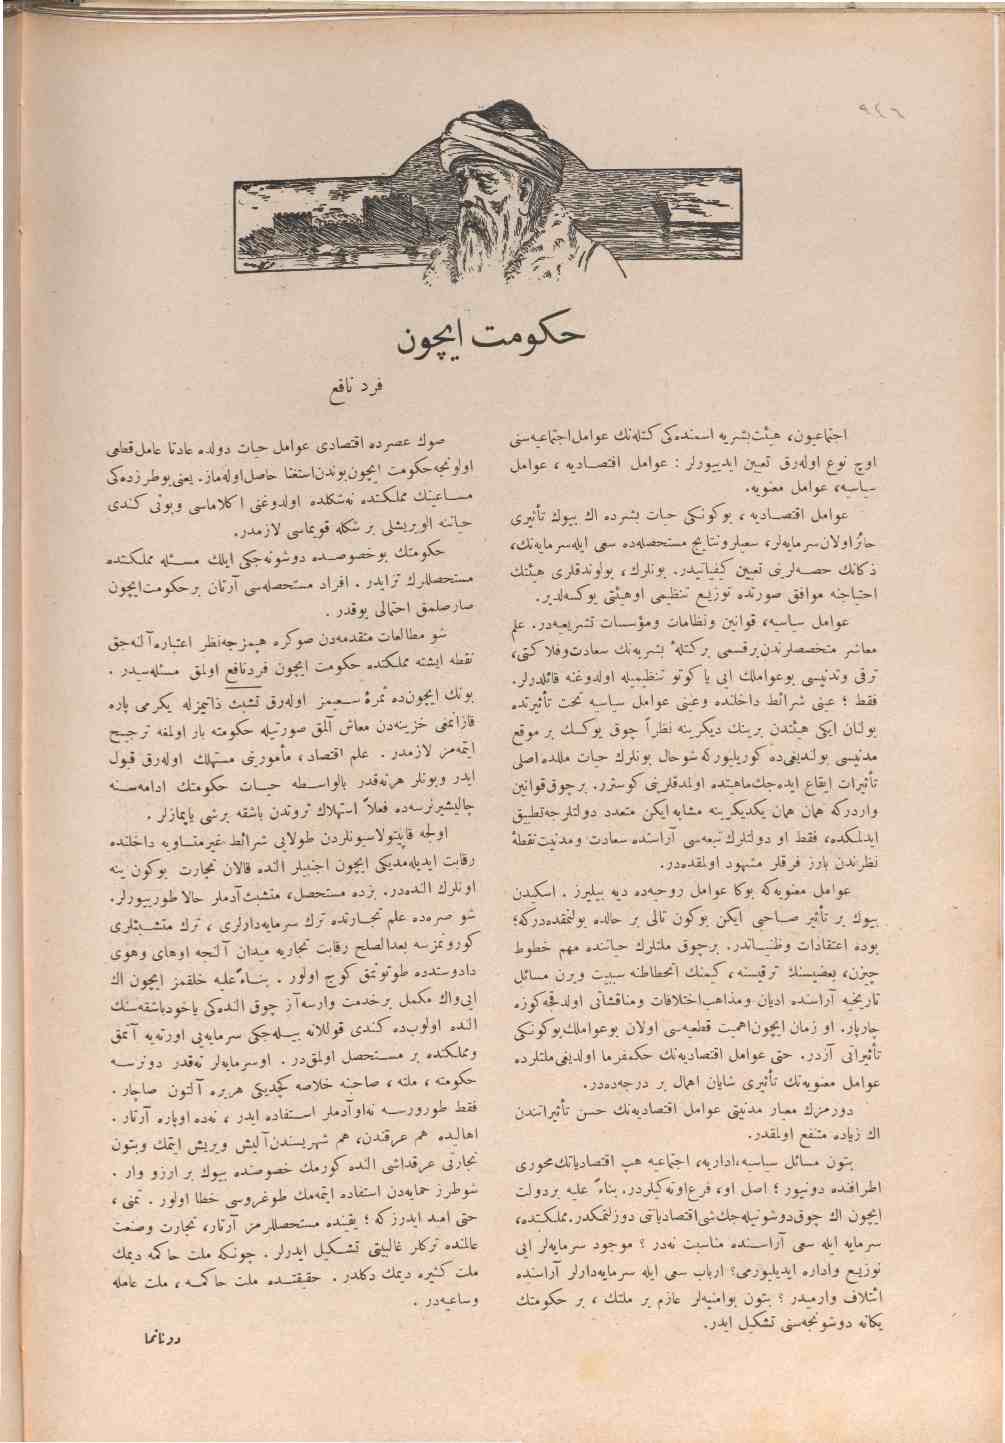 ٩٤٦
حكومت ایچون
فرد نافع
اجتماعیون، هیئت بشریه اسمنده‌كی كتله‌نك عوامل اجتماعیه‌سنی
اوچ نوع اوله‌رق تعیین ایدییورلر : عوامل اقتصادیه ، عوامل
سیاسیه، عوامل معنویه.
عوامل اقتصادیه ، بوكونكی حیات بشرده اك بیوك تأثیری
حائز اولان سرمایه‌لر، سعیلر و نتایج مستحصله‌ده سعی ایله سرمایه‌نك،
ذكانك حصه‌لرینی تعیین كیفیاتیدر. بونلرك ، بولوندقلری هیئتك
احتیاجنه موافق صورتده توزیع تنظیمی او هیئتی یوكسه‌لدیر.
عوامل سیاسیه، قوانین ونظامات ومؤسسات تشریعیه‌در. علم
معاشر متخصصلرندن برقسمی بركتلهٔ بشریه‌نك سعادت وفلاكتی،
ترقی وتدنیسی بوعواملك ایی یا كوتو تنظیمیله اولدوغنه قائلدرلر.
فقط ؛ عینی شرائط داخلنده وعینی عوامل سیاسیه تحت تأثیرنده
بولنان ایكی هیئتدن برینك دیكرینه نظراً چوق یوكسك بر موقع
مدنیسی بولندیغی‌ده كوریلیوركه شوحال بونلرك حیات مللده اصلی
تأثیرات ایقاع ایده‌جك ماهیتده اولمدقلرینی كوسترر. برچوق قوانین
واردركه همان همان یكدیكرینه مشابه ایكن متعدد دولتلرجه تطبیق
ایدلمكده، فقط او دولتلرك تبعه‌سی آراسنده سعادت ومدنیت نقطهٔ
نظرندن بارز فرقلر مشهود اولمقده‌در.
عوامل معنویه‌كه بوكا عوامل روحیه‌ده دیه بیلیرز . اسكیدن
بیوك بر تأثیر صاحبی ایكن بوكون تالی بر حالده بولنمقده‌دركه؛
بوده اعتقادات وظنیاتدر. برچوق ملتلرك حیاتنده مهم خطوط
چیزن، بعضیسنك ترقیسنه ، كیمنك انحطاطنه سببیت ویرن مسائل
تاریخیه آراسنده ادیان ومذاهب اختلافات ومناقشاتی اولدقجه كوزه
چارپار. او زمان ایچون اهمیت قطعیه‌سی اولان بوعواملك بوكونكی
تأثیراتی آزدر. حتی عوامل اقتصادیه‌نك حكمفرما اولدیغی ملتلرده
عوامل معنویه‌نك تأثیری شایان اهمال بر درجه‌ده‌در.
دورمزك معیار مدنیتی عوامل اقتصادیه‌نك حسن تأثیراتندن
اك زیاده منتفع اولمقدر.
بتون مسائل سیاسیه، اداریه، اجتماعیه هپ اقتصادیاتك محوری
اطرافنده دونیور ؛ اصل او، فرع اوته‌كیلردر. بناءً علیه بردولت
ایچون اك چوق دوشونیله‌جك شی اقتصادیاتنی دوزلتمكدر. مملكتده،
سرمایه ایله سعی آراسنده مناسبت نه‌در ؟ موجود سرمایه‌لر ایی
توزیع واداره ایدیلیورمی؟ ارباب سعی ایله سرمایه‌دارلر آراسنده
ائتلاف وارمیدر ؟ بتون بوامنیه‌لر عازم بر ملتك ، بر حكومتك
یكانه دوشونجه‌سنی تشكیل ایدر.
صوك عصرده اقتصادی عوامل حیات دولده عادتا عامل قطعی
اولونجه حكومت ایچون بوندن استغنا حاصل اوله‌ماز. یعنی بو طرزده‌كی
مساعینك مملكتده نه شكلده اولدوغنی اكلاماسی وبونی كندی
حیاتنه الویریشلی بر شكله قویماسی لازمدر.
حكومتك بو خصوصده دوشونه‌جكی ایلك مسئله مملكتده
مستحصللرك تزایدر . افراد مستحصله‌سی آرتان بر حكومت ایچون
صارصلمق احتمالی یوقدر .
شو مطالعات متقدمه‌دن صوكره هپمزجه نظر اعتباره آلنه‌جق
نقطه ایشته مملكتده حكومت ایچون فرد نافع اولمق مسئله‌سیدر .
بونك ایچون‌ده ثمرهٔ سعیمز اوله‌رق تشبث ذاتیمزله یكرمی پاره
قازانمغی خزینه‌دن معاش آلمق صورتیله حكومته بار اولمغه ترجیح
ایتمه‌مز لازمدر . علم اقتصاد ، مأمورینی مستهلك اوله‌رق قبول
ایدر وبونلر هرنه‌قدر بالواسطه حیات حكومتك ادامه‌سنه
چالیشیرلرسه‌ده فعلاً استهلاك ثروتدن باشقه برشی یاپمازلر .
اولجه قاپیتولاسیونلردن طولایی شرائط غیرمتساویه داخلنده
رقابت ایدیله‌مدیكی ایچون اجنبیلر النده قالان تجارت بوكون ینه
اونلرك النده‌در. بزده مستحصل، متشبث آدملر حالا طورییورلر.
شو صره‌ده علم تجارتده ترك سرمایه‌دارلری ، ترك متشبثلری
كورونمزسه بعدالصلح رقابت تجاریه میدان آلنجه اوهای وهوی
دادوستدده طوتونمق كوج اولور . بناءً علیه خلقمز ایچون اك
ایی واك مكمل برخدمت وارسه آز چوق النده‌كی یاخود باشقه‌سنك
النده اولوب‌ده كندی قوللانه بیله‌جكی سرمایه‌یی اورته‌یه آتمق
ومملكتده بر مستحصل اولمق‌در . اوسرمایه‌لر نه‌قدر دونرسه
حكومته ، ملته ، صاحبنه خلاصه كچدیكی هریره آلتون صاچار .
فقط طورورسه نه‌اوآدملر استفاده ایدر ، نه‌ده اوپاره آرتار .
اهالیده هم عرقندن، هم شهریسندن آلیش ویریش ایتمك وبتون
تجارتی عرقداشی النده كورمك خصوصنده بیوك بر ارزو وار .
شوطرز حمایه‌دن استفاده ایتمه‌مك طوغروسی خطا اولور . تمنی ،
حتی امید ایدرزكه ؛ یقینده مستحصللرمز آرتار، تجارت وصنعت
عالمنده تركلر غالبیتی تشكیل ایدرلر . چونكه ملت حاكمه دیمك
ملت كثیره دیمك دكلدر . حقیقتده ملت حاكمه ، ملت عامله
وساعیه‌در .
دونانما